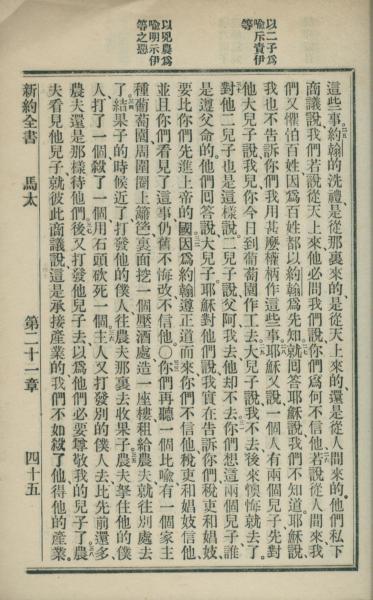 以二子為
喻斥責伊
等
以兇農為
喻明示伊
等之惡
這些事約翰的洗禮是從那裏來的、是從天上來的、還是從人間來的、他們私下
商議說、我們若說從天上來、他必問我們說、你們為何不信他、若說從人間來、我
們又懼怕百姓、因為百姓都以約翰為先知、就囘答耶穌說、我們不知道、耶穌說、
我也不告訴你們、我用甚麼權柄作這些事、耶穌又說、一個人有兩個兒子、先對
他大兒子說、我兒你今日到葡萄園作工去、大兒子說我不去、後來懊悔就去了、
對他二兒子也是這樣說、二兒子說、父阿我去、他却不去、你們想這兩個兒子、誰
是遵父命的、他們囘答說、大兒子、耶穌對他們說、我實在告訴你們、稅吏和娼妓、
要比你們先進上帝的國、因為約翰遵正道而來、你們不信他、稅吏和娼妓信他、
並且你們看見了這事、仍舊不悔改不信他、〇你們再聽一個比喻、有一個家主、
種葡萄園、周圍圈上籬笆、裏面挖一個壓酒處、造一座樓、租給農夫、就往別處去
了、結果子的時候近了、打發他的僕人、往農夫那裏去收果子、農夫拏住他的僕
人、打了一個、殺了一個、用石頭砍死一個、主人又打發別的僕人去、比先前還多、
農夫還是那樣待他們、後又打發他兒子去、以為他們必要尊敬我的兒子了、農
夫看見他兒子、就彼此商議說、這是承接產業的、我們不如殺了他、得他的產業、
新約全書　馬太　第二十一章　四十五